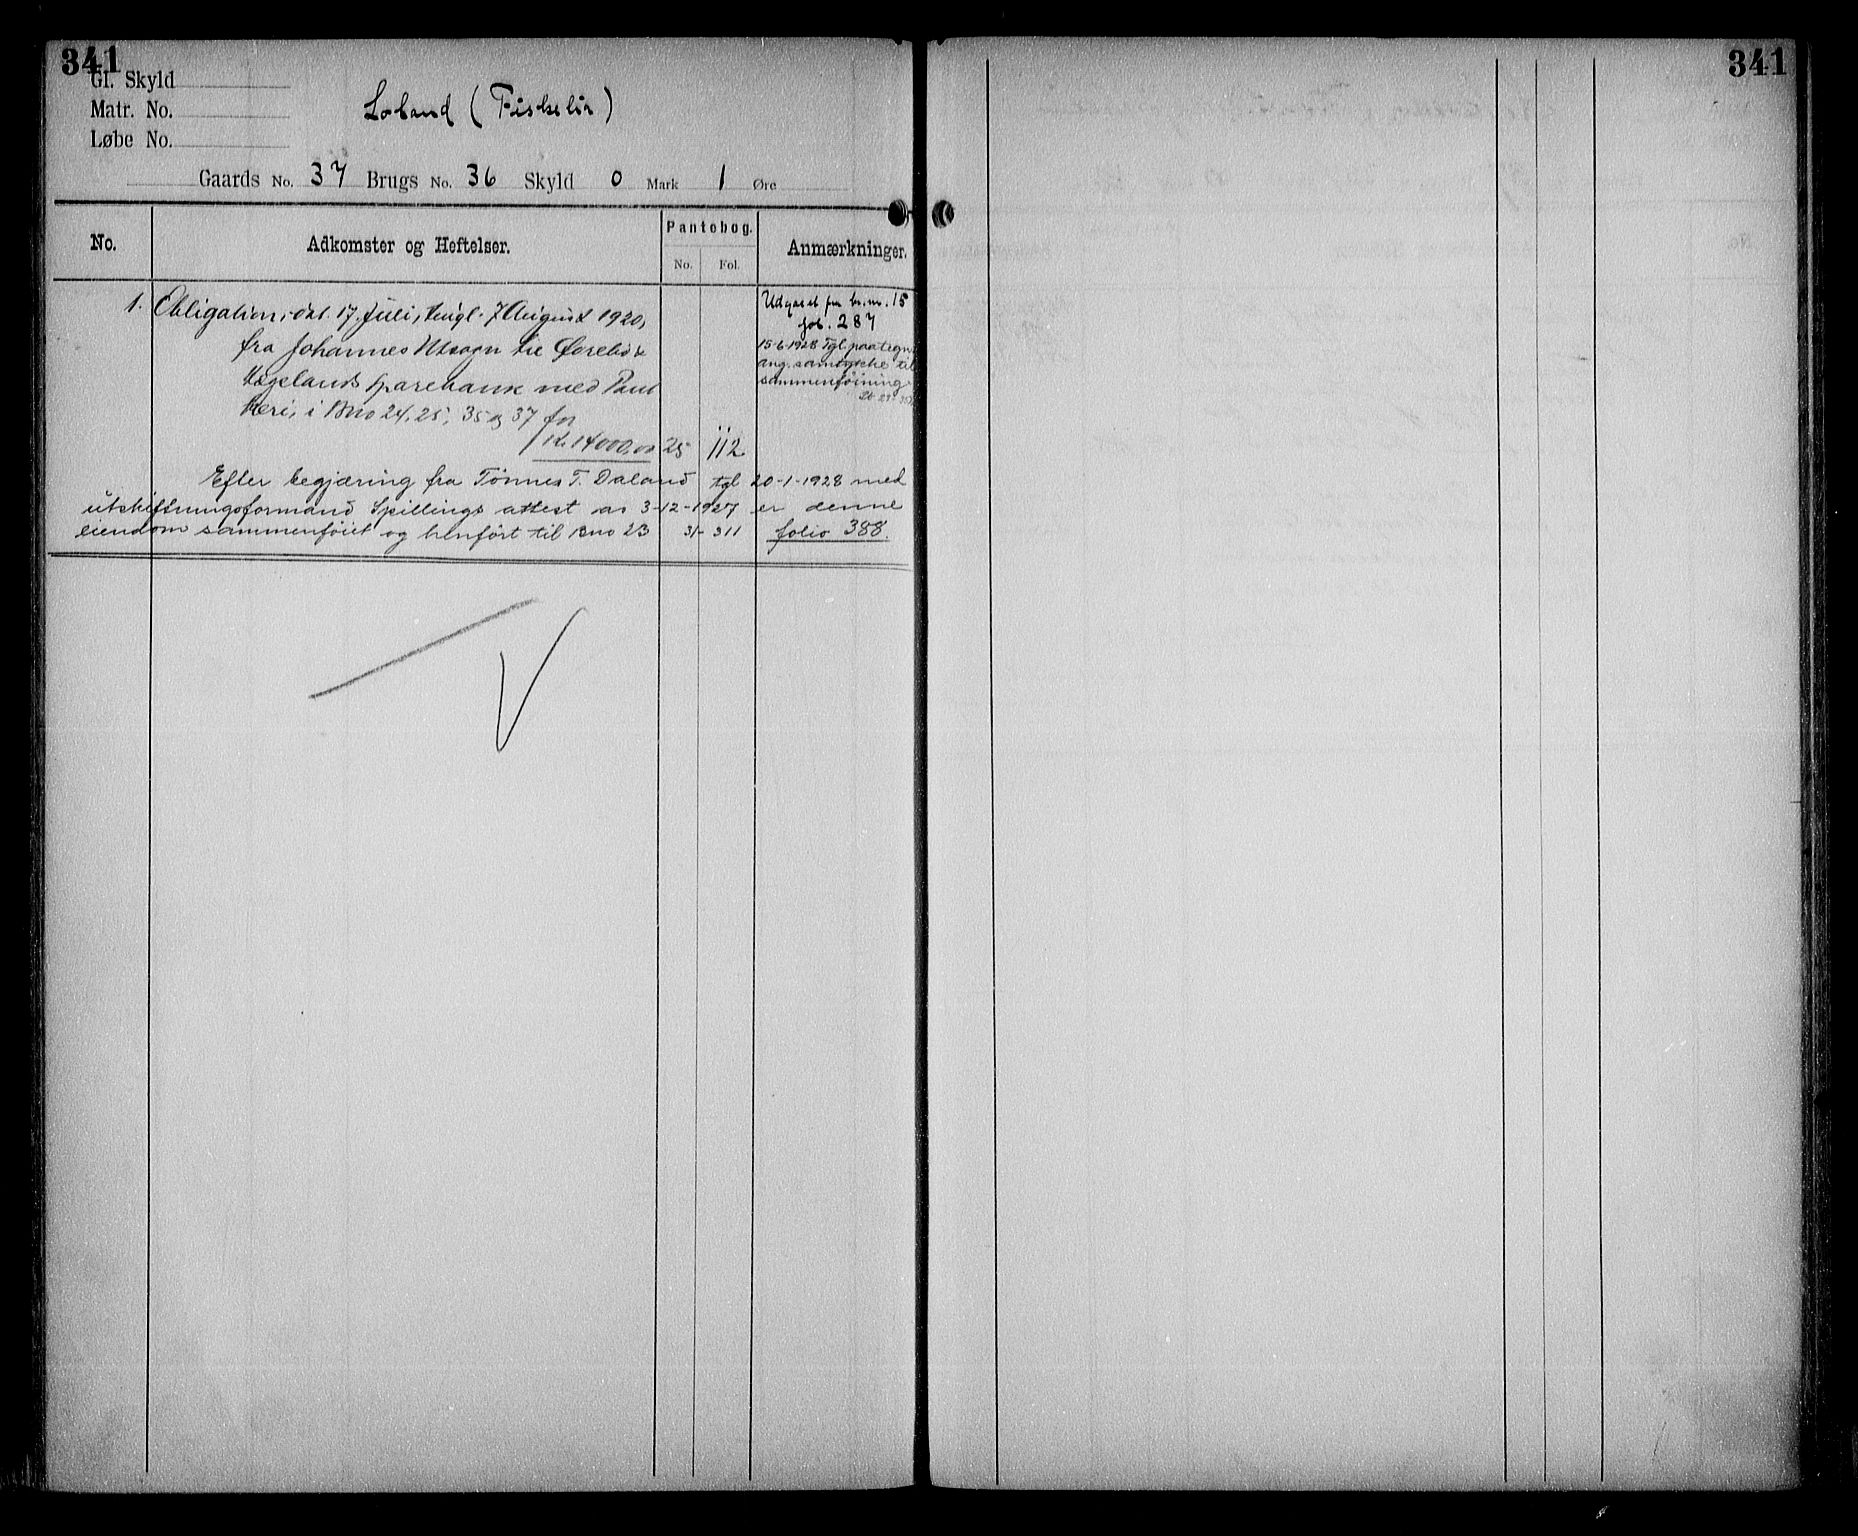 341
341
Gl. Skyld
Matr. No.
Løbe No.
Loland (Fiskelir)
Gaards No. 37 Brugs No. 36 Skyld 0 Mark 1 Øre
No.
Adkomster og Heftelser.
Pantebog.
No. Fol.
Anmærkninger.
1. Obligation, dat. 17. Juli, tingl. 7 August 1920,
fra Johannes Utsogn til Øvrebø &
Hægelands sparebank med Pant
i Bno 24, 25, 35 og 37 for
Kr. 14000,00 25 112
Udgaaet fra br.nr. 15
fol. 287
15-6-1928 Tgl. paategn
ang. samtykke til
sammenføining
Efter begjæring fra Tönnes T. Daland tgl 20-1-1928 med
utskiftningsformand Spillings attest av 3-12-1927 er denne
eiendom sammenföiet og henfört til Bno 23 31-311 folio 388.